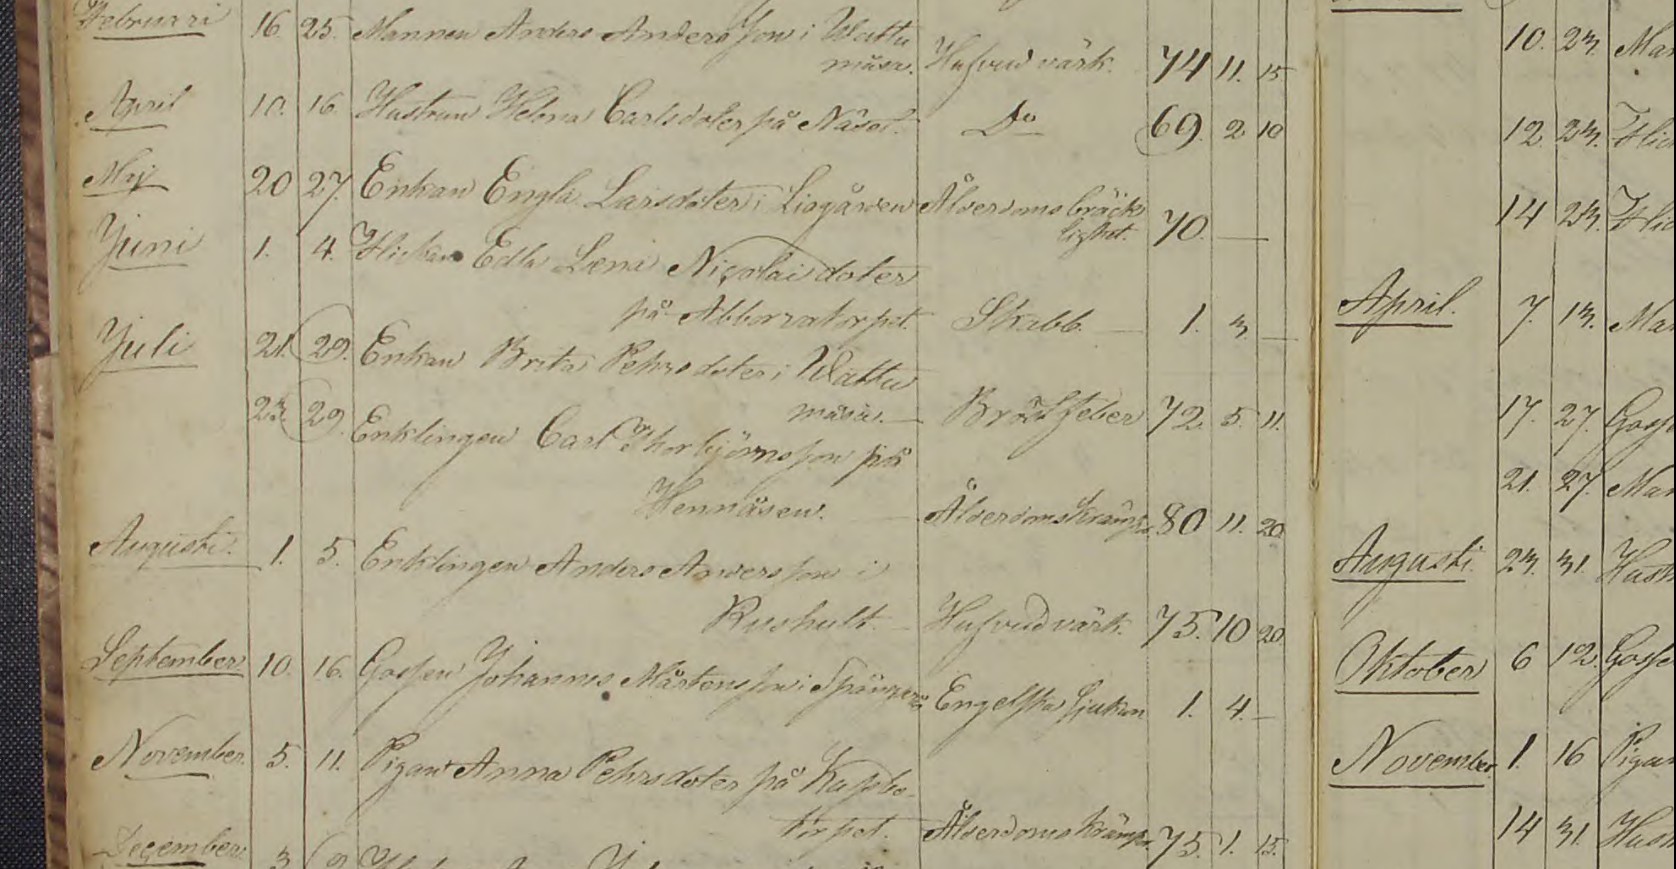 Februari 16. 25. Mannen Anders Andersson i Wattu
måsa. Hufvud värk. 74 11. 15
April 10. 16. Hustrun Helena Carlsdoter på Näset. Do 69. 2 10
Maj 20 27. Enkan Engla Larsdoter i Liagården Ålderdoms bräck
lighet. 70.
Juni 1. 4. Flickan Edla Lena Nicolai doter
på Abborratorpet. Skabb. 1. 3.
Juli 21. 29. Enkan Brita Pehrsdoter i Wattu
måsa. Bröstfeber 72. 5. 11.
23. 29. Enklingen Carl Thorbjörnsson på
Hennåsen. Ålderdomskrämpa 80 11. 20.
Augusti. 1. 5. Enklingen Anders Andersson i
Rushult. Hufvudvärk. 75. 10 20.
September 10. 16. Gossen Johannes Mårtensson i Engelska sjukan 1. 4.
November. 5. 11. Pigan Anna Pehrsdoter på
torpet. Ålderdomskrämpa. 75. 1. 15.
December. 3
10. 23. Man
12 23.
14 23.
April. 7. 13. Man
17. 27. Gosse
21. 27. Man
Augusti. 23. 31. Hust
Oktober 6 12. Gosse
November. 1. 16 Pigan
14 31. Hust